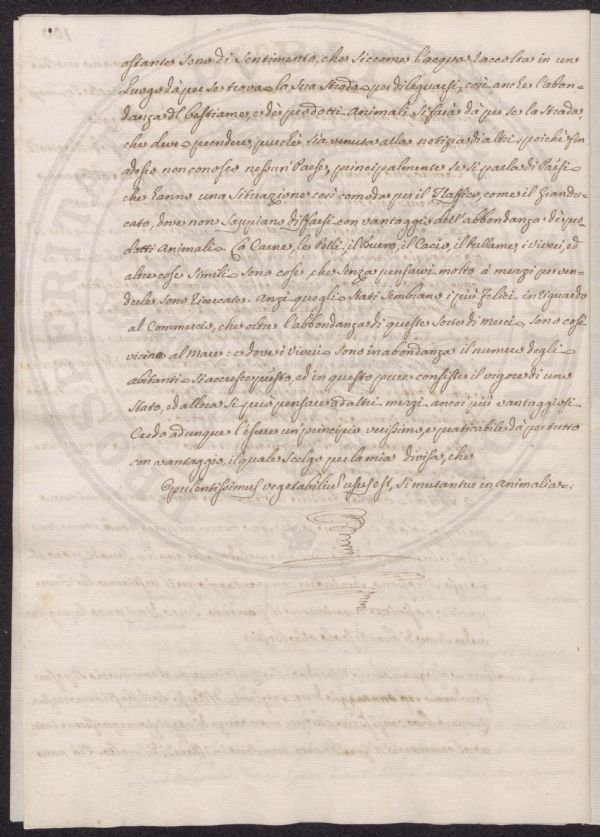 ostante sono di sentimento, che siccome l'acqua raccolta in un
Luogo dà per se trova la sua strada per dileguarsi, così anche l'abon-
danza del bestiame, e dè prodotti Animali si farà dà per se la strada,
che deve prendere, purchè sia venuta alla notizia di altri, poichè fin
adesso non conosco nessun Paese, principalmente se si parla di Paesi
che hanno una situazione così comoda per il Traffico, come il Grandu-
cato, dove non sappiano disfarsi con vantaggio dell'abbondanza dè pro-
dotti Animali. La Carne, le Pelli, il Burro, il Cacio, il Pollame, i Viveri, ed
altre cose simili sono cose, che senza pensarvi molto à mezzi per ven-
derle sono ricercate. Anzi quegli Stati sembrano i più felici in riguardo
al Commercio, che oltre l'abbondanza di queste sorte di Merci sono così
vicino al Mare: e dove i Viveri sono in abondanza il numero degli
abitanti si accresce presto, ed in questo pure consiste il vigore di uno
Stato, ed allora si può pensare ad altri mezzi ancoi più vantaggiosi.
Credo adunque l'essere un principio verissimo, e praticabile dà per tutto
con vantaggio, il quale scelgo per la mia divisa, che
Opulentissimus vegetabilium usus est, si mutantur in Animalia.